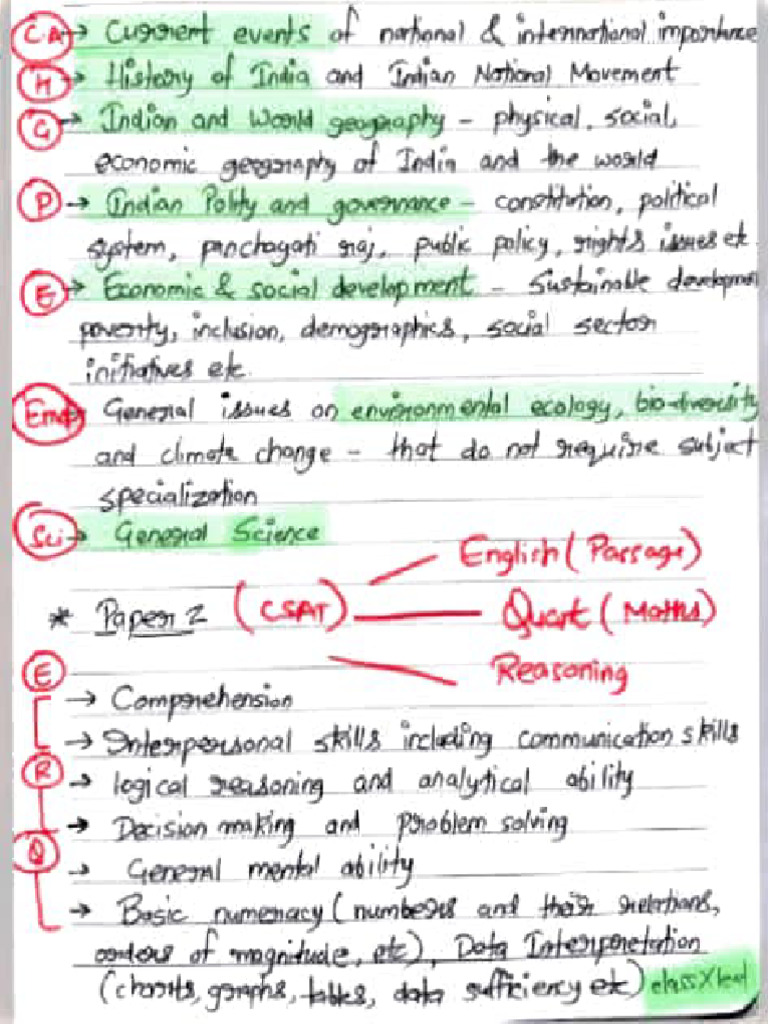 CA → Current events of national & international importance
H → History of India and Indian National Movement
G → Indian and World geography - physical, social,
economic geography of India and the world
P → Indian Polity and governance - constitution, political
system, panchayati raj, public policy, rights issues etc
E → Economic & social development - Sustainable development
poverty, inclusion, demographics, social sector
initiatives etc
→ General issues on environmental ecology, bio-diversity
and climate change - that do not require subject
specialization
Sci → General Science
English (Passage)
* Paper 2 (CSAT) Quant (Maths)
Reasoning
E
→ Comprehension
→ Interpersonal skills including communication skills
R
→ logical reasoning and analytical ability
→ Decision making and problem solving
Q
→ General mental ability
→ Basic numeracy (numbers and their relations,
orders of magnitude, etc), Data Interpretation
(charts, graphs, tables, data sufficiency etc) class X level